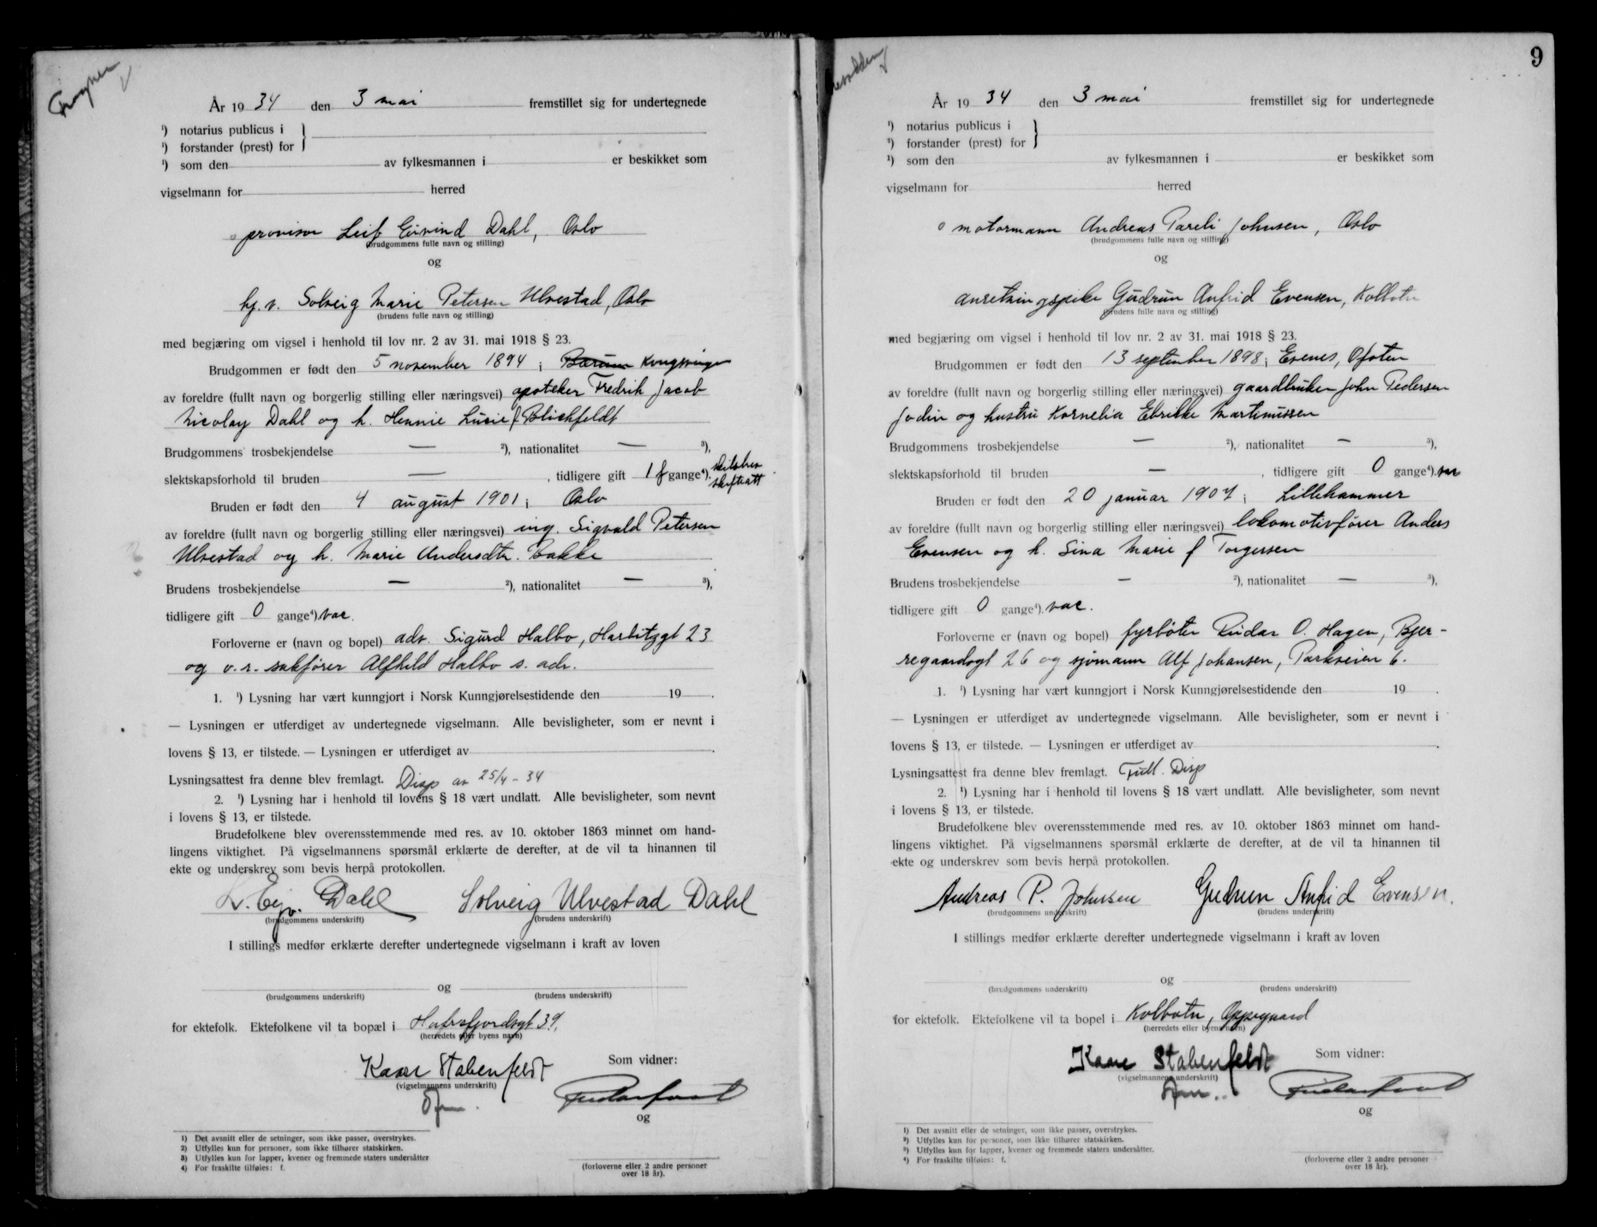 Frogner
År 19 34 den 3 mai fremstillet sig for undertegnede
¹) notarius publicus i
¹) forstander (prest) for
¹) som den av fylkesmannen i er beskikket som
vigselmann for herred
provisor Leif Eivind Dahl, Oslo
(brudgommens fulle navn og stilling)
og
hj.v. Solveig Marie Petersen Ulvestad, Oslo
(brudens fulle navn og stilling)
med begjæring om vigsel i henhold til lov nr. 2 av 31. mai 1918 § 23.
Brudgommen er født den 5 november 1894 i Bærum Kongsvinger
av foreldre (fullt navn og borgerlig stilling eller næringsvei) apoteker Fredrik Jacob
Nicolay Dahl og h. Hennie Lucie f Blichfeldt
Brudgommens trosbekjendelse — ²), nationalitet — ³),
slektskapsforhold til bruden — , tidligere gift 1 f gange⁴). skilsbev skifteatt
Bruden er født den 4 august 1901 i Oslo
av foreldre (fullt navn og borgerlig stilling eller næringsvei) ing. Sigvald Petersen
Ulvestad og h. Marie Andersdtr. Bakke
Brudens trosbekjendelse — ²), nationalitet — ³),
tidligere gift 0 gange⁴) vac.
Forloverne er (navn og bopel) adv. Sigurd Halbo, Harbitzgt 23
og o.r.sakfører Alfhild Halbo s. adr.
1. ¹) Lysning har vært kunngjort i Norsk Kunngjørelsestidende den 19 .
— Lysningen er utferdiget av undertegnede vigselmann. Alle bevisligheter, som er nevnt i
lovens § 13, er tilstede. — Lysningen er utferdiget av .
Lysningsattest fra denne blev fremlagt. Disp av 25/4 - 34
2. ¹) Lysning har i henhold til lovens § 18 vært undlatt. Alle bevisligheter, som nevnt
i lovens § 13, er tilstede.
Brudefolkene blev overensstemmende med res. av 10. oktober 1863 minnet om hand-
lingens viktighet. På vigselmannens spørsmål erklærte de derefter, at de vil ta hinannen til
ekte og underskrev som bevis herpå protokollen.
L. Eiv. Dahl Solveig Ulvestad Dahl
(brudgommens underskrift) (brudens underskrift)
I stillings medfør erklærte derefter undertegnede vigselmann i kraft av loven
og
(brudgommens underskrift) (brudens underskrift)
for ektefolk. Ektefolkene vil ta bopæl i Hafrsfjordsgt 39
(herredets eller byens navn)
Kaare Stabenfeldt Som vidner:
(vigselmannens underskrift)
og
1) Det avsnitt eller de setninger, som ikke passer, overstrykes.
2) Utfylles kun for personer, som ikke tilhører statskirken.
3) Utfylles kun for lapper, kvener og fremmede staters undersåtter
4) For fraskilte tilføies: f.
(forloverne eller 2 andre personer
over 18 år).
9
År 19 34 den 3 mai fremstillet sig for undertegnede
¹) notarius publicus i
¹) forstander (prest) for
¹) som den av fylkesmannen i er beskikket som
vigselmann for herred
motormann Andreas Pareli Johnsen, Oslo
(brudgommens fulle navn og stilling)
og
anretningspike Gudrun Anfrid Evensen, Kolbotn
(brudens fulle navn og stilling)
med begjæring om vigsel i henhold til lov nr. 2 av 31. mai 1918 § 23.
Brudgommen er født den 13 september 1898 i Evenes, Ofoten
av foreldre (fullt navn og borgerlig stilling eller næringsvei) gaardbruker John Pedersen
Jodin og hustru Kornelia Ebrikke Martinussen
Brudgommens trosbekjendelse — ²), nationalitet — ³),
slektskapsforhold til bruden — , tidligere gift 0 gange⁴). vac
Bruden er født den 20 januar 1907 i Lillehammer
av foreldre (fullt navn og borgerlig stilling eller næringsvei) lokomotivfører Anders
Evensen og h. Sina Marie f Torgersen
Brudens trosbekjendelse — ²), nationalitet — ³),
tidligere gift 0 gange⁴). vac.
Forloverne er (navn og bopel) fyrbøter Reidar O. Hagen, Bjer-
regaardsgt 26 og sjømann Alf Johansen, Parkveien 6.
1. ¹) Lysning har vært kunngjort i Norsk Kunngjørelsestidende den 19 .
— Lysningen er utferdiget av undertegnede vigselmann. Alle bevisligheter, som er nevnt i
lovens § 13, er tilstede. — Lysningen er utferdiget av .
Lysningsattest fra denne blev fremlagt. Full. Disp
2. ¹) Lysning har i henhold til lovens § 18 vært undlatt. Alle bevisligheter, som nevnt
i lovens § 13, er tilstede.
Brudefolkene blev overensstemmende med res. av 10. oktober 1863 minnet om hand-
lingens viktighet. På vigselmannens spørsmål erklærte de derefter, at de vil ta hinannen til
ekte og underskrev som bevis herpå protokollen.
Andreas P. Johnsen Gudrun Anfrid Evensen.
(brudgommens underskrift) (brudens underskrift)
I stillings medfør erklærte derefter undertegnede vigselmann i kraft av loven
og
(brudgommens underskrift) (brudens underskrift)
for ektefolk. Ektefolkene vil ta bopel i Kolbotn, Oppegaard
(herredets eller byens navn)
Kaare Stabenfeldt Som vidner:
(vigselmannens underskrift)
og
1) Det avsnitt eller de setninger, som ikke passer, overstrykes.
2) Utfylles kun for personer, som ikke tilhører statskirken.
3) Utfylles kun for lapper, kvener og fremmede staters undersåtter.
4) For fraskilte tilføies: f.
(forloverne eller 2 andre personer
over 18 år).